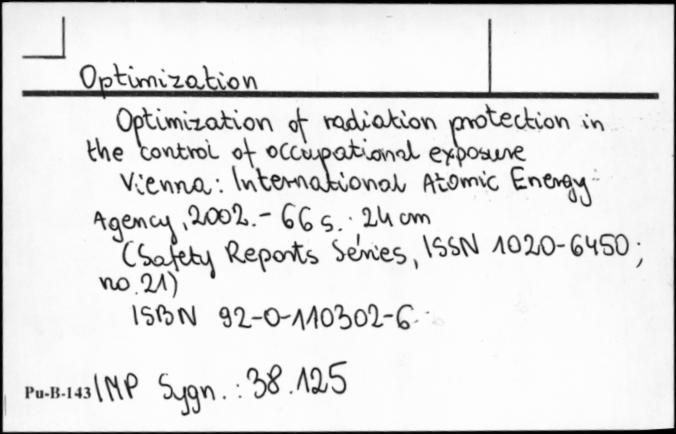 Optimization
Optimization of radiation protection in
the control of occupational exposure
Vienna: International Atomic Energy
Agency, 2002.- 66 s. ; 24 cm
(Safety Reports Series, ISSN 1020-6450 ;
no. 21)
ISBN 92-0-110302-6
Pu-B-143 IMP Sygn. : 38.125